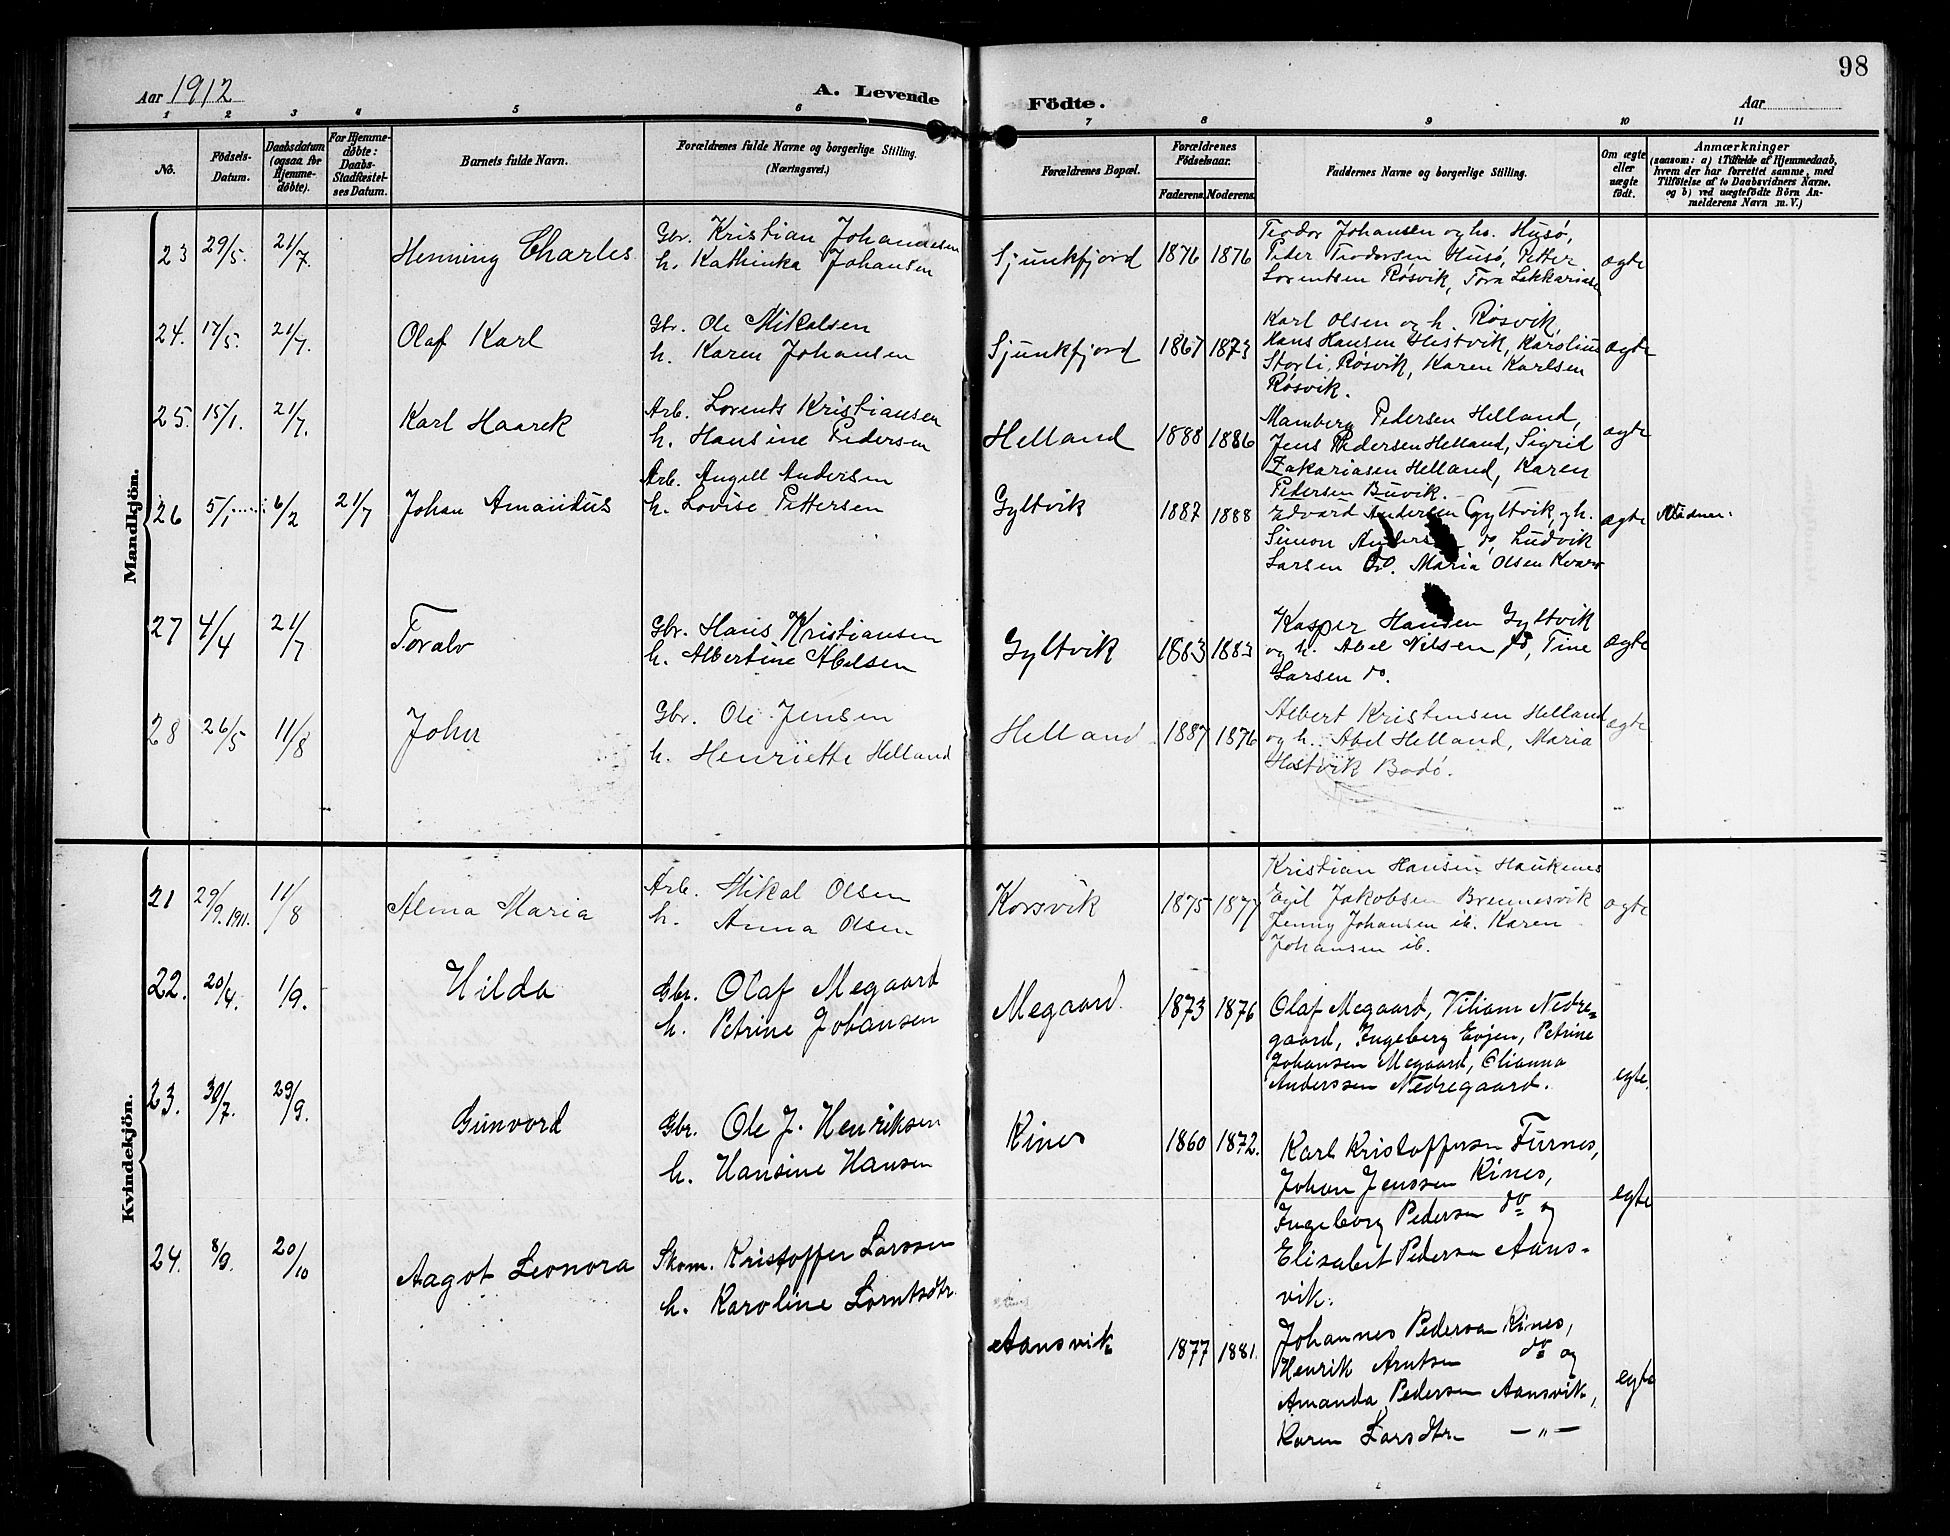 98
Aar 1912 A. Levende Födte. Aar
1 2 3 4 5 6 7 8 9 10 11
No.
Födsels-
Datum.
Daabsdatum
(ogsaa for
Hjemme-
døbte).
For Hjemme-
døbte:
Daabs-
Stadfæstel-
ses Datum.
Barnets fulde Navn.
Forældrenes fulde Navne og borgerlige Stilling.
(Næringsvei.)
Forældrenes Bopæl.
Forældrenes
Födselsaar.
Faderens. Moderens.
Faddernes Navne og borgerlige Stilling.
Om ægte
eller
uægte
födt.
Anmærkninger
(saasom: a) i Tilfælde af Hjemmedaab,
hvem der har forrettet samme, med
Tilföielse af to Daabsvidners Navne,
og b) ved uægtefödte Börn An-
melderens Navn m. V.)
Mandkjön.
23 29/5. 21/7. Henning Charles
Gbr. Kristian Johannesen
h. Kathinka Johansen
Sjunkfjord 1876 1876
Teodor Johansen og h. Husø,
Peder Teodorsen Husø, Petter
Lorentsen Røsvik, Tora Zakkariasen
ægte
24. 17/5. 21/7. Olaf Karl
Gbr. Ole Mikalsen
h. Karen Johansen
Sjunkfjord 1867 1873
Karl Olsen og h. Røsvik,
Hans Hansen Hestvik, Karolius
Storli, Røsvik, Karen Karlsen
Røsvik.
ægte
25. 15/1. 21/7. Karl Haarek
Arb. Lorents Kristiansen
h. Hansine Pedersen
Helland 1888 1886
Pedersen Helland,
Jens Pedersen Helland, Sigrid
Zakariasen Helland, Karen
Pedersen Buvik.
ægte
26 5/1 6/2 21/7 Johan Amandus
Arb. Angell Andersen
h. Lovise Pettersen
Gyltvik 1887 1888
Edvard Andersen Gyltvik, og h.
Simon Andersen do, Ludvik
Larsen do. Maria Olsen Kvarv
ægte
27 4/4 21/7 Toralv
Gbr. Hans Kristiansen
h. Albertine Abelsen
Gyltvik 1883 1883
Kasper Hansen Gyltvik
og h. Abel Nilsen do, Tine
Larsen do.
ægte
28 26/5 11/8 John
Gbr. Ole Jensen
h. Henriette Helland
Helland 1887 1876
Albert Kristensen Helland
og h. Abel Helland, Maria
Hestvik Bodø.
ægte
Kvindekjön.
21 29/9. 1911. 11/8 Alma Maria
Arb. Mikal Olsen
h. Anna Olsen
Korsvik 1875 1877
Kristian Hansen Haukenes
Egil Jakobsen Brennesvik
Jenny Johansen ib. Karen
Johansen ib.
ægte
22. 20/4. 1/9. Hilda
Gbr. Olaf Megaard
h. Petrine Johansen
Megaard. 1873 1876
Olaf Megaard, Viliam Nedre-
gaard, Ingeberg Evjen, Petrine
Johansen Megaard, Elianna
Anderssen Nedregaard.
egte.
23. 30/7. 29/9. Gunvord
Gbr. Ole J. Henriksen
h. Hansine Hansen
Kines 1860 1872.
Karl Kristoffersen Furnes,
Johan Jenssen Kines,
Ingeborg Pedersen do og
Elisabet Pedersen Aans-
vik.
egte
24. 8/9. 20/10 Aagot Leonora
Skom. Kristoffer Larssen
h. Karoline Lorntsdtr.
Aansvik 1877 1881.
Johannes Pedersen Kines,
Henrik Arntsen do og
Amanda Pedersen Aansvik,
Karen Larsdtr — " —
egte